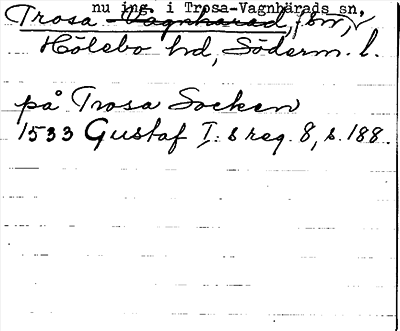 nu ing. i Trosa-Vagnhärads sn.
Trosa Vagnhärad, sn,
Hölebo hd, Söderm. l.
på Trosa Socken
1533 Gustaf I:s reg. 8, s. 188.